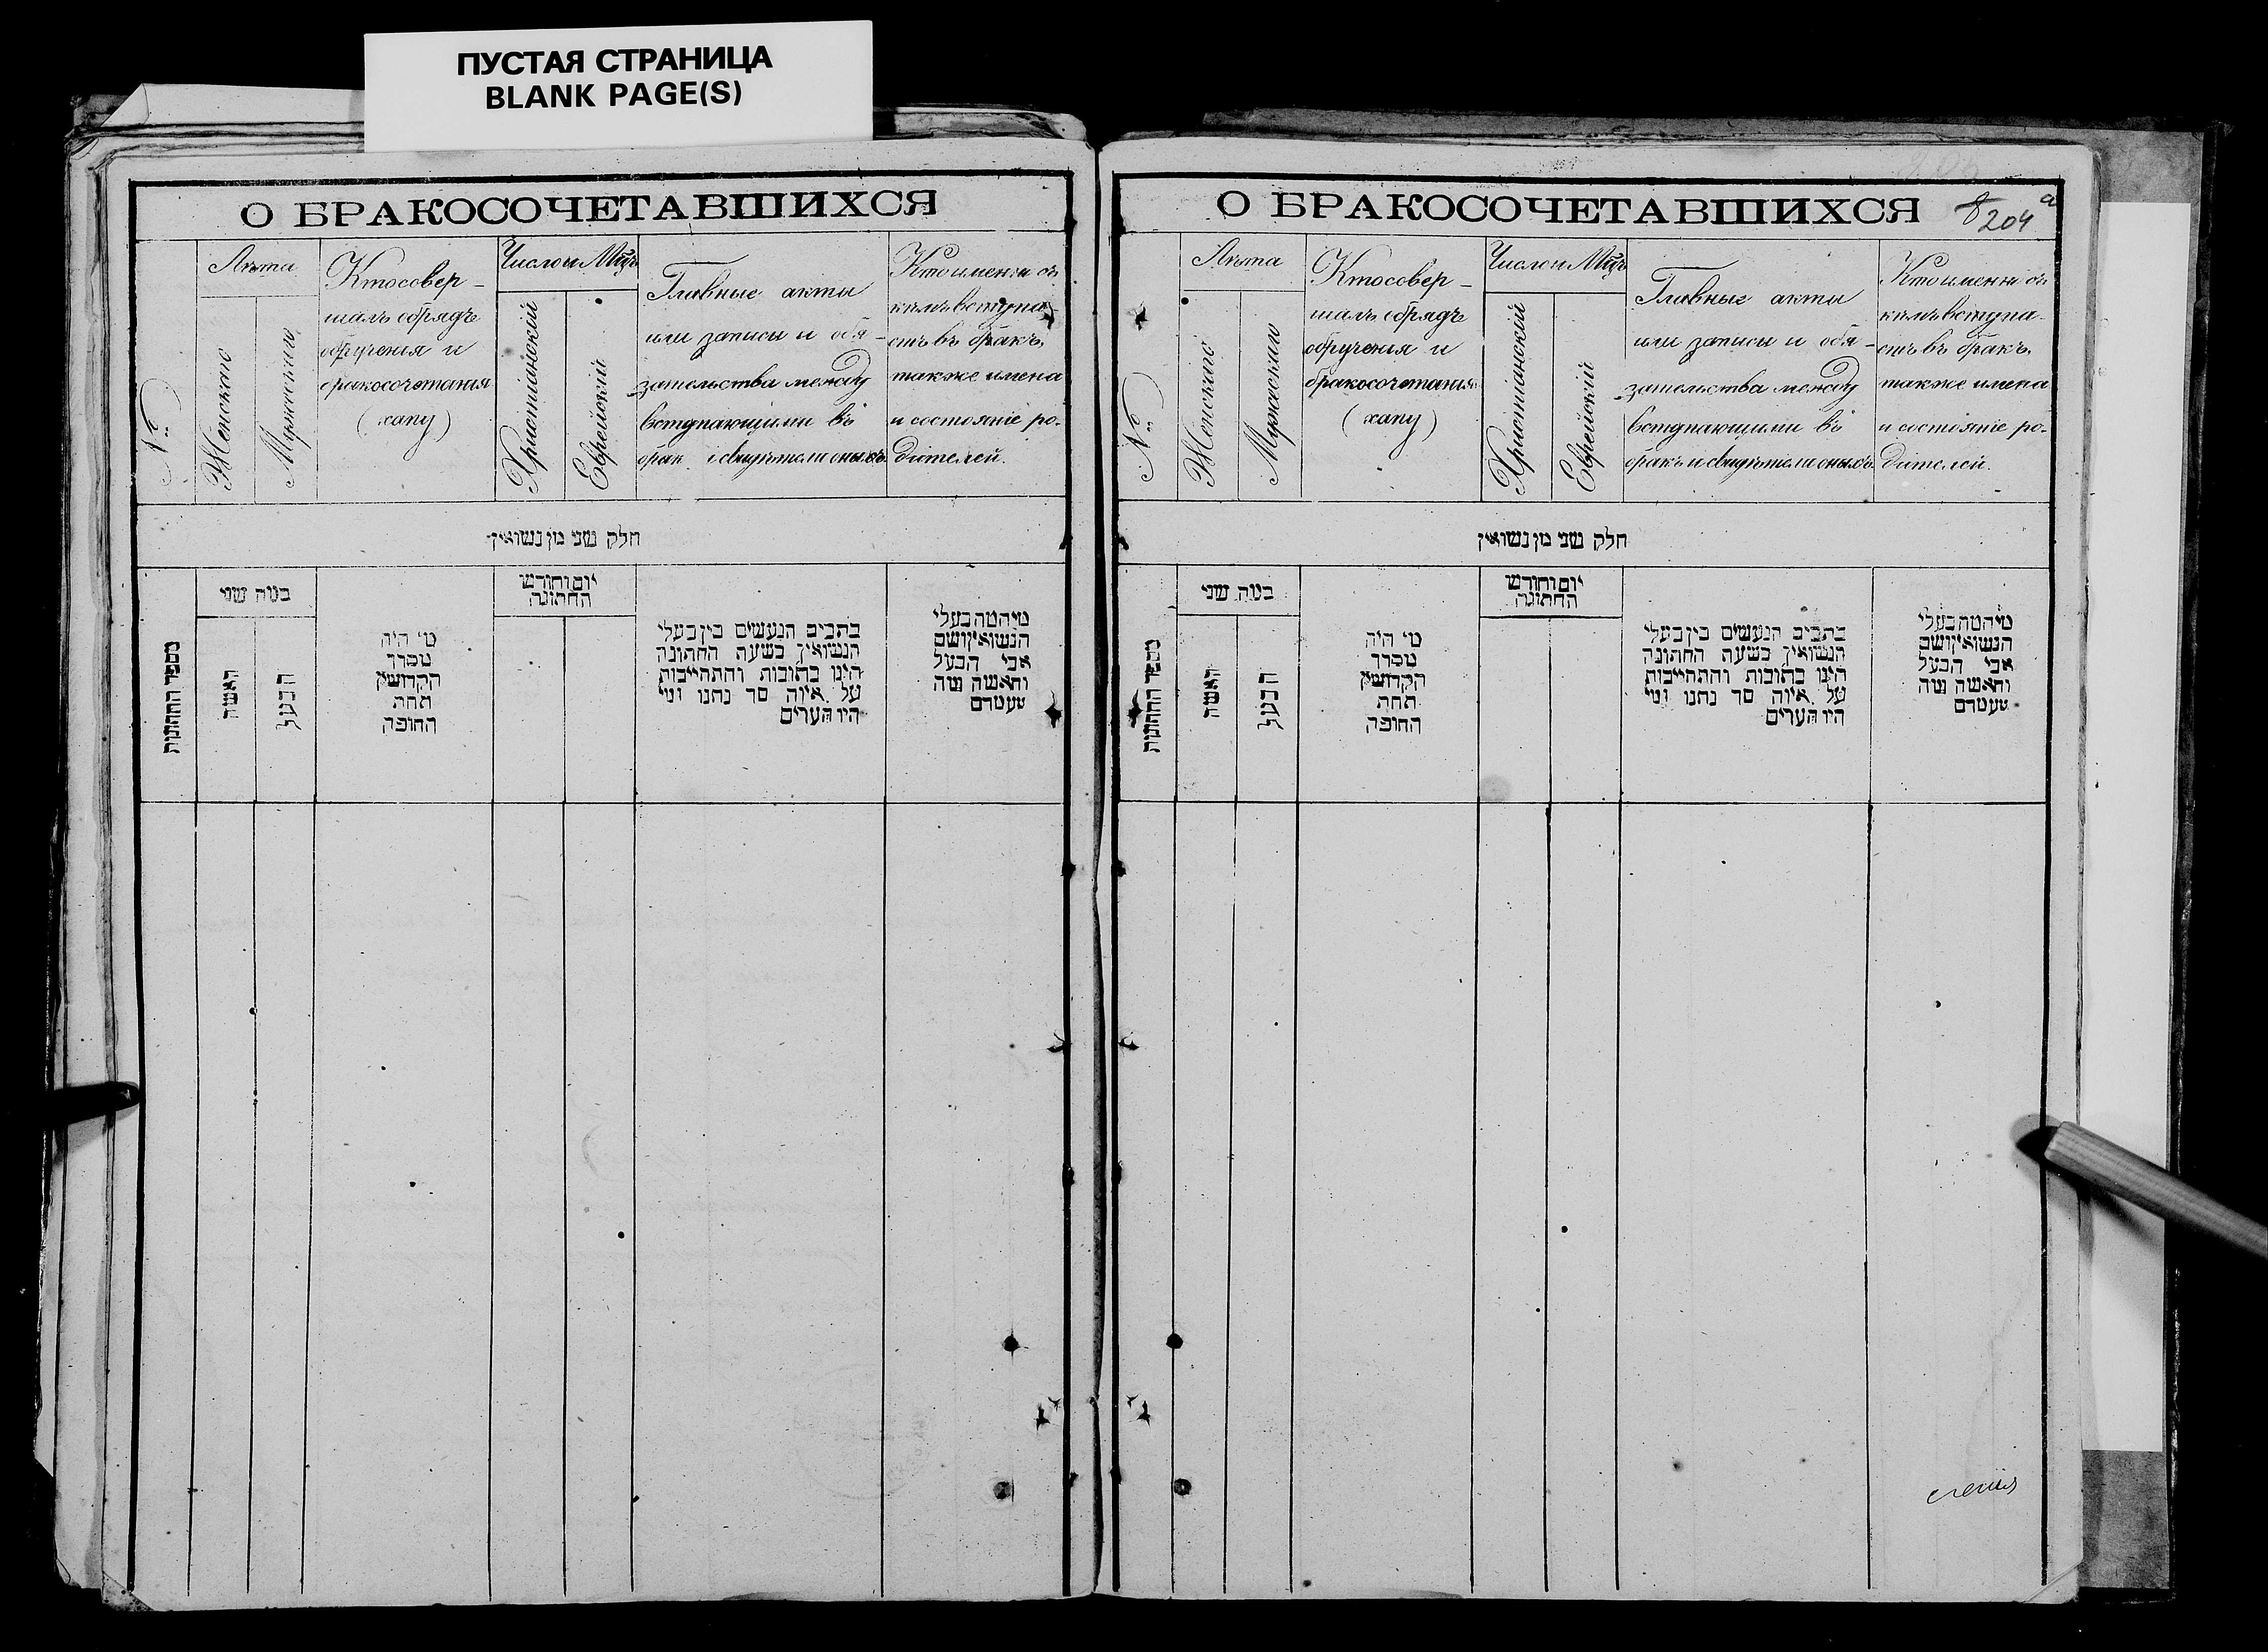 ПУСТАЯ СТРАНИЦА
BLANK PAGE(S)
О БРАКОСОЧЕТАВШИХСЯ
№
Лѣта
Женскаго
Мужескаго
Кто совер-
шалъ обрядъ
обрученія и
бракосочетанія
(хапу)
Число и Мцъ
Христіанскій
Еврейскій
Главные акты
или записи и обя-
зательства между
вступающими въ
бракъ и свидѣтели оныхъ
Кто именно съ
кѣмъ вступа-
етъ въ бракъ
также имена
и состояніе ро-
дителей.
חלק שני מן נשואין
מספר החתונות
בנוה שני
האשה
הבעל
מי היה
מסדר
הקדושין
תחת
החופה
יום וחודש
החתונה
כתבים הנעשים בין בעלי
הנשואין בשעת החתונה
היינו כתובות והתחייבות
על איזה סך נתנו ומי
היו העדים
מיהמה בעלי
הנשואין ושם
אבי הבעל
והאשה ומה
מעמדם
О БРАКОСОЧЕТАВШИХСЯ
8
204
а
№
Лѣта
Женскаго
Мужескаго
Кто совер-
шалъ обрядъ
обрученія и
бракосочетанія
(хапу)
Число и Мцъ
Христіанскій
Еврейскій
Главные акты
или записи и обя-
зательства между
вступающими въ
бракъ и свидѣтели оныхъ
Кто именно съ
кѣмъ вступа-
етъ въ бракъ
также имена
и состояніе ро-
дителей.
חלק שני מן נשואין
מספר החתונות
בנוה שני
האשה
הבעל
מי היה
מסדר
הקדושין
תחת
החופה
יום וחודש
החתונה
כתבים הנעשים בין בעלי
הנשואין בשעת החתונה
היינו כתובות והתחייבות
על איזה סך נתנו ומי
היו העדים
מיהמה בעלי
הנשואין ושם
אבי הבעל
והאשה ומה
מעמדם